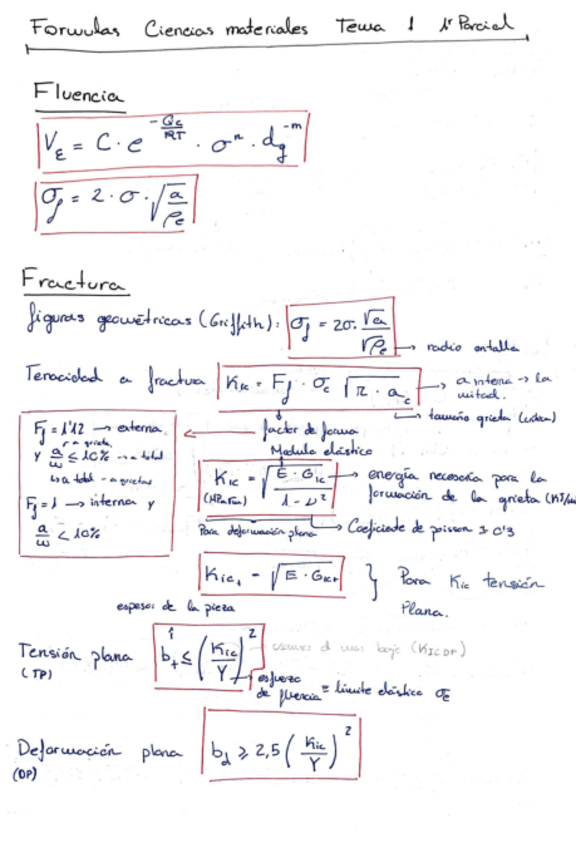 Formulas Ciencias materiales Tema 1 1º Parcial
Fluencia
V_ε = C · e^(-Qc/RT) · σ^n · d_g^-m
σ_f = 2 · σ · √(a/ρe)
Fractura
figuras geométricas (Griffith): σ_f = 2σ · √a/√ρe → radio entalla
Tenacidad a fractura K_Ic = F_f · σ_c √(π · a_c) → a interna → la mitad.
→ tamaño grieta
factor de forma
F_f = 1'12 → externa
y a/ω ≤ 10% → a total
F_f = 1 → interna y
a/ω < 10%
Modulo elástico
K_Ic = √(E · G_Ic / 1 - ν²) → energía necesaria para la formación de la grieta
Para deformación plana → Coeficiente de poisson
K_Ic_t = √(E · G_Ict) } Para K_Ic tensión plana.
espesor de la pieza
Tensión plana (TP) b_t ≤ (K_Ic/Y)² (K_Ic or)
→ esfuerzo de fluencia = límite elástico σ_E
Deformación plana (DP) b_d ≥ 2,5 (K_Ic/Y)²